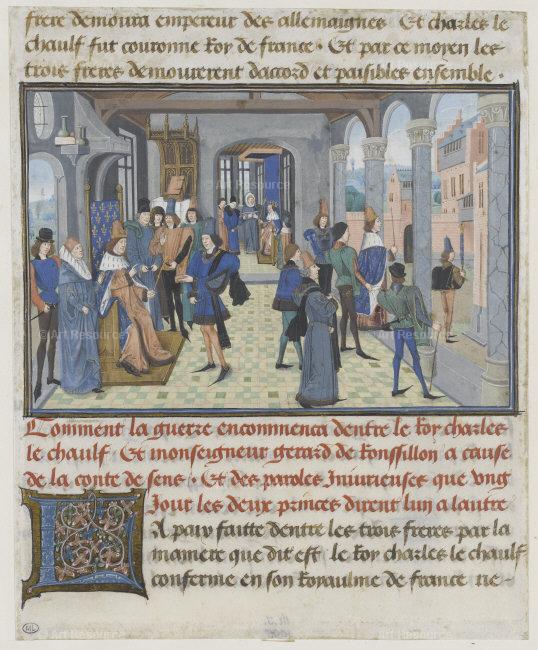 frere demoura empereur des allemaignes Et charles le
chaulf fut couronne Roy de france · Et par ce moyen les
trois freres demourerent daccord et paisibles ensemble ·
Comment la guerre encommenca dentre le Roy charles
le chaulf Et monseigneur gerard de Roussillon a cause
de la conte de sens · Et des parolles Iniurienses que vng
Jour les deux princes dirent lun a lautre
La paix faitte dentre les trois freres par la
maniere que dit est le Roy charles le chaulf
conferme en son Royaulme de france ne-
ML
© Art Resource